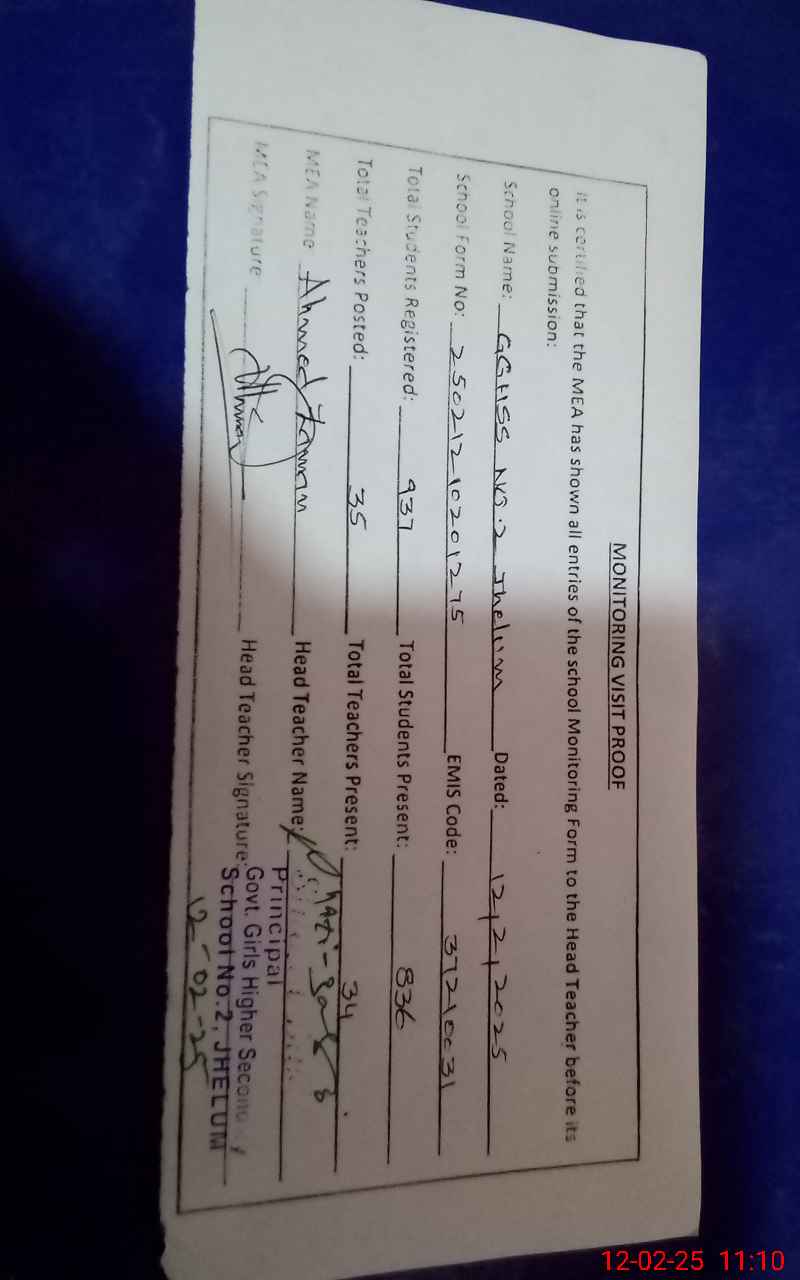 MONITORING VISIT PROOF
It is certified that the MEA has shown all entries of the school Monitoring Form to the Head Teacher before its
online submission:
School Name: GGHSS No.2 Jhelum Dated: 12/2/2025
School Form No: 25021210201275 EMIS Code: 37210031
Total Students Registered: 937 Total Students Present: 836
Total Teachers Posted: 35 Total Teachers Present: 34
MEA Name: Ahmed Zaman Head Teacher Name:
MEA Signature Head Teacher Signature:
Principal
Govt. Girls Higher Secondary
School No.2, JHELUM
12-02-25
12-02-25 11:10